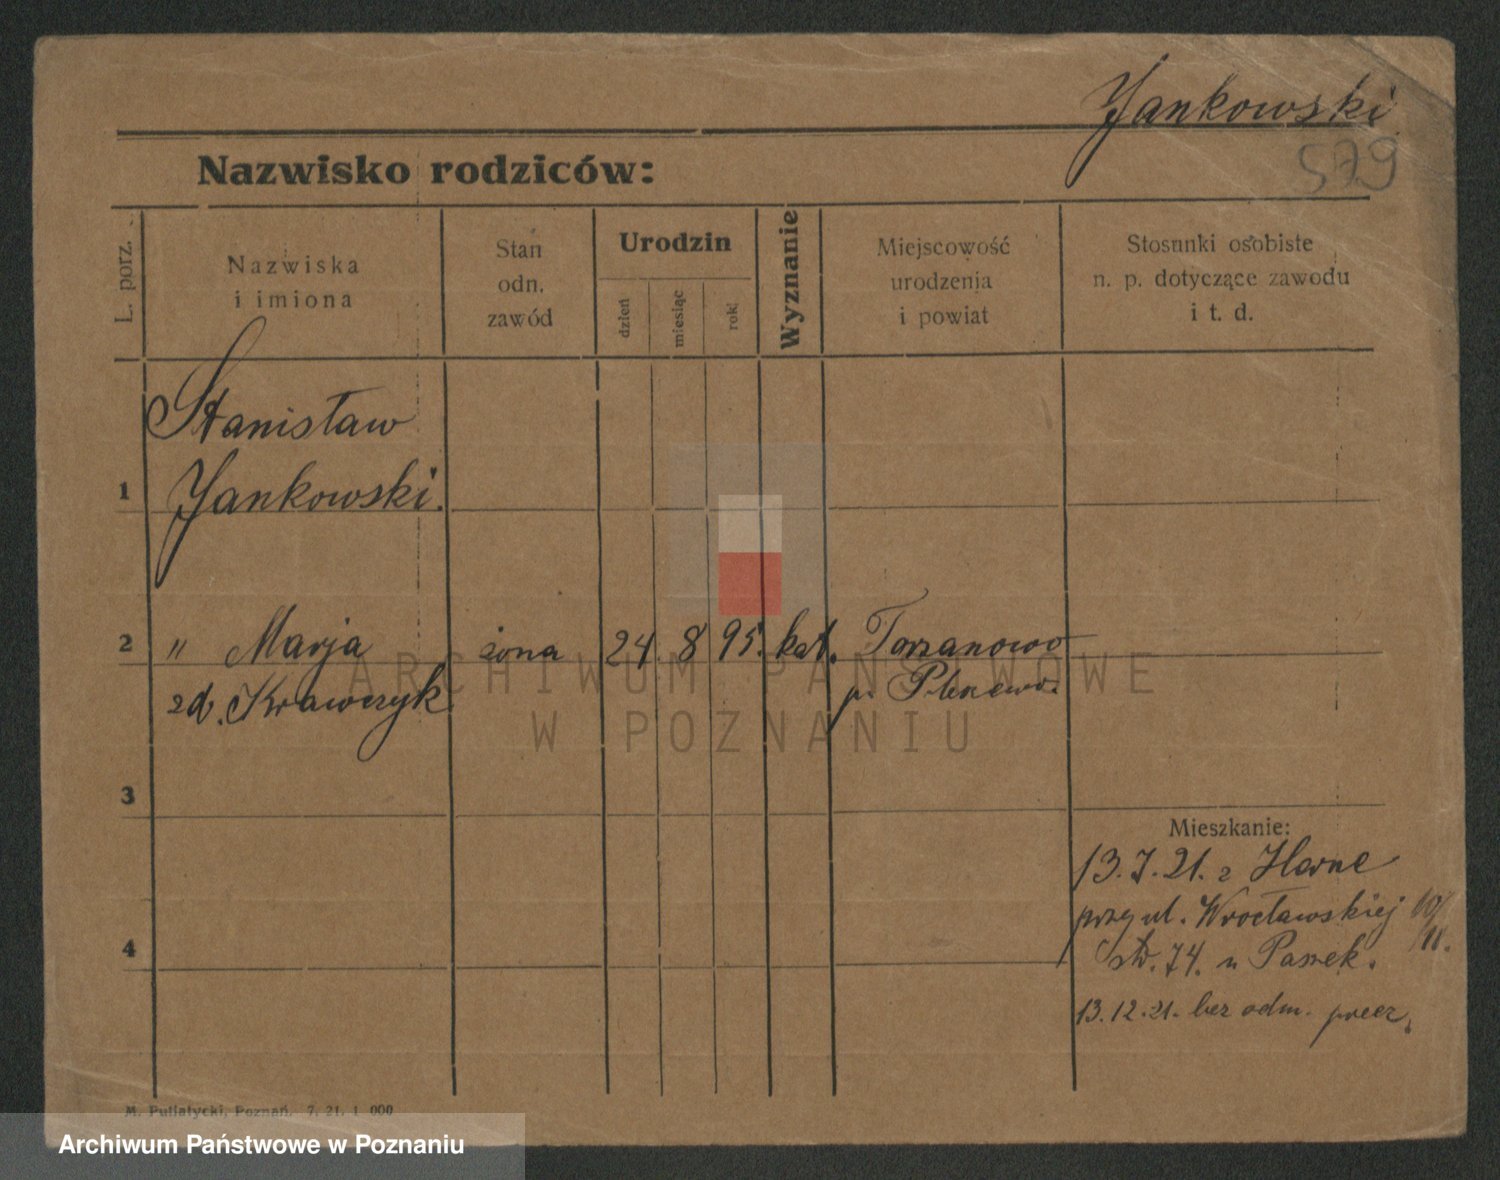 Jankowski
579
Nazwisko rodziców:
L. porz.
Nazwiska
i imiona
Stan
odn.
zawód
Urodzin
dzień
miesiąc
rok
Wyznanie
Miejscowość
urodzenia
i powiat
Stosunki osobiste
n. p. dotyczące zawodu
i t. d.
Stanisław
1 Jankowski.
2 " Marja żona 24. 8 95. kat.
zd. Krawczyk
p.
3
Mieszkanie:
13.7.21. z Herne
przy ul. Wrocławskiej 10/
4 str. 74. u 11.
13.12.21. bez odm. precz.
M. Putiatycki, Poznań. 7. 21. 1 000
ARCHIWUM PAŃSTWOWE
W POZNANIU
Archiwum Państwowe w Poznaniu